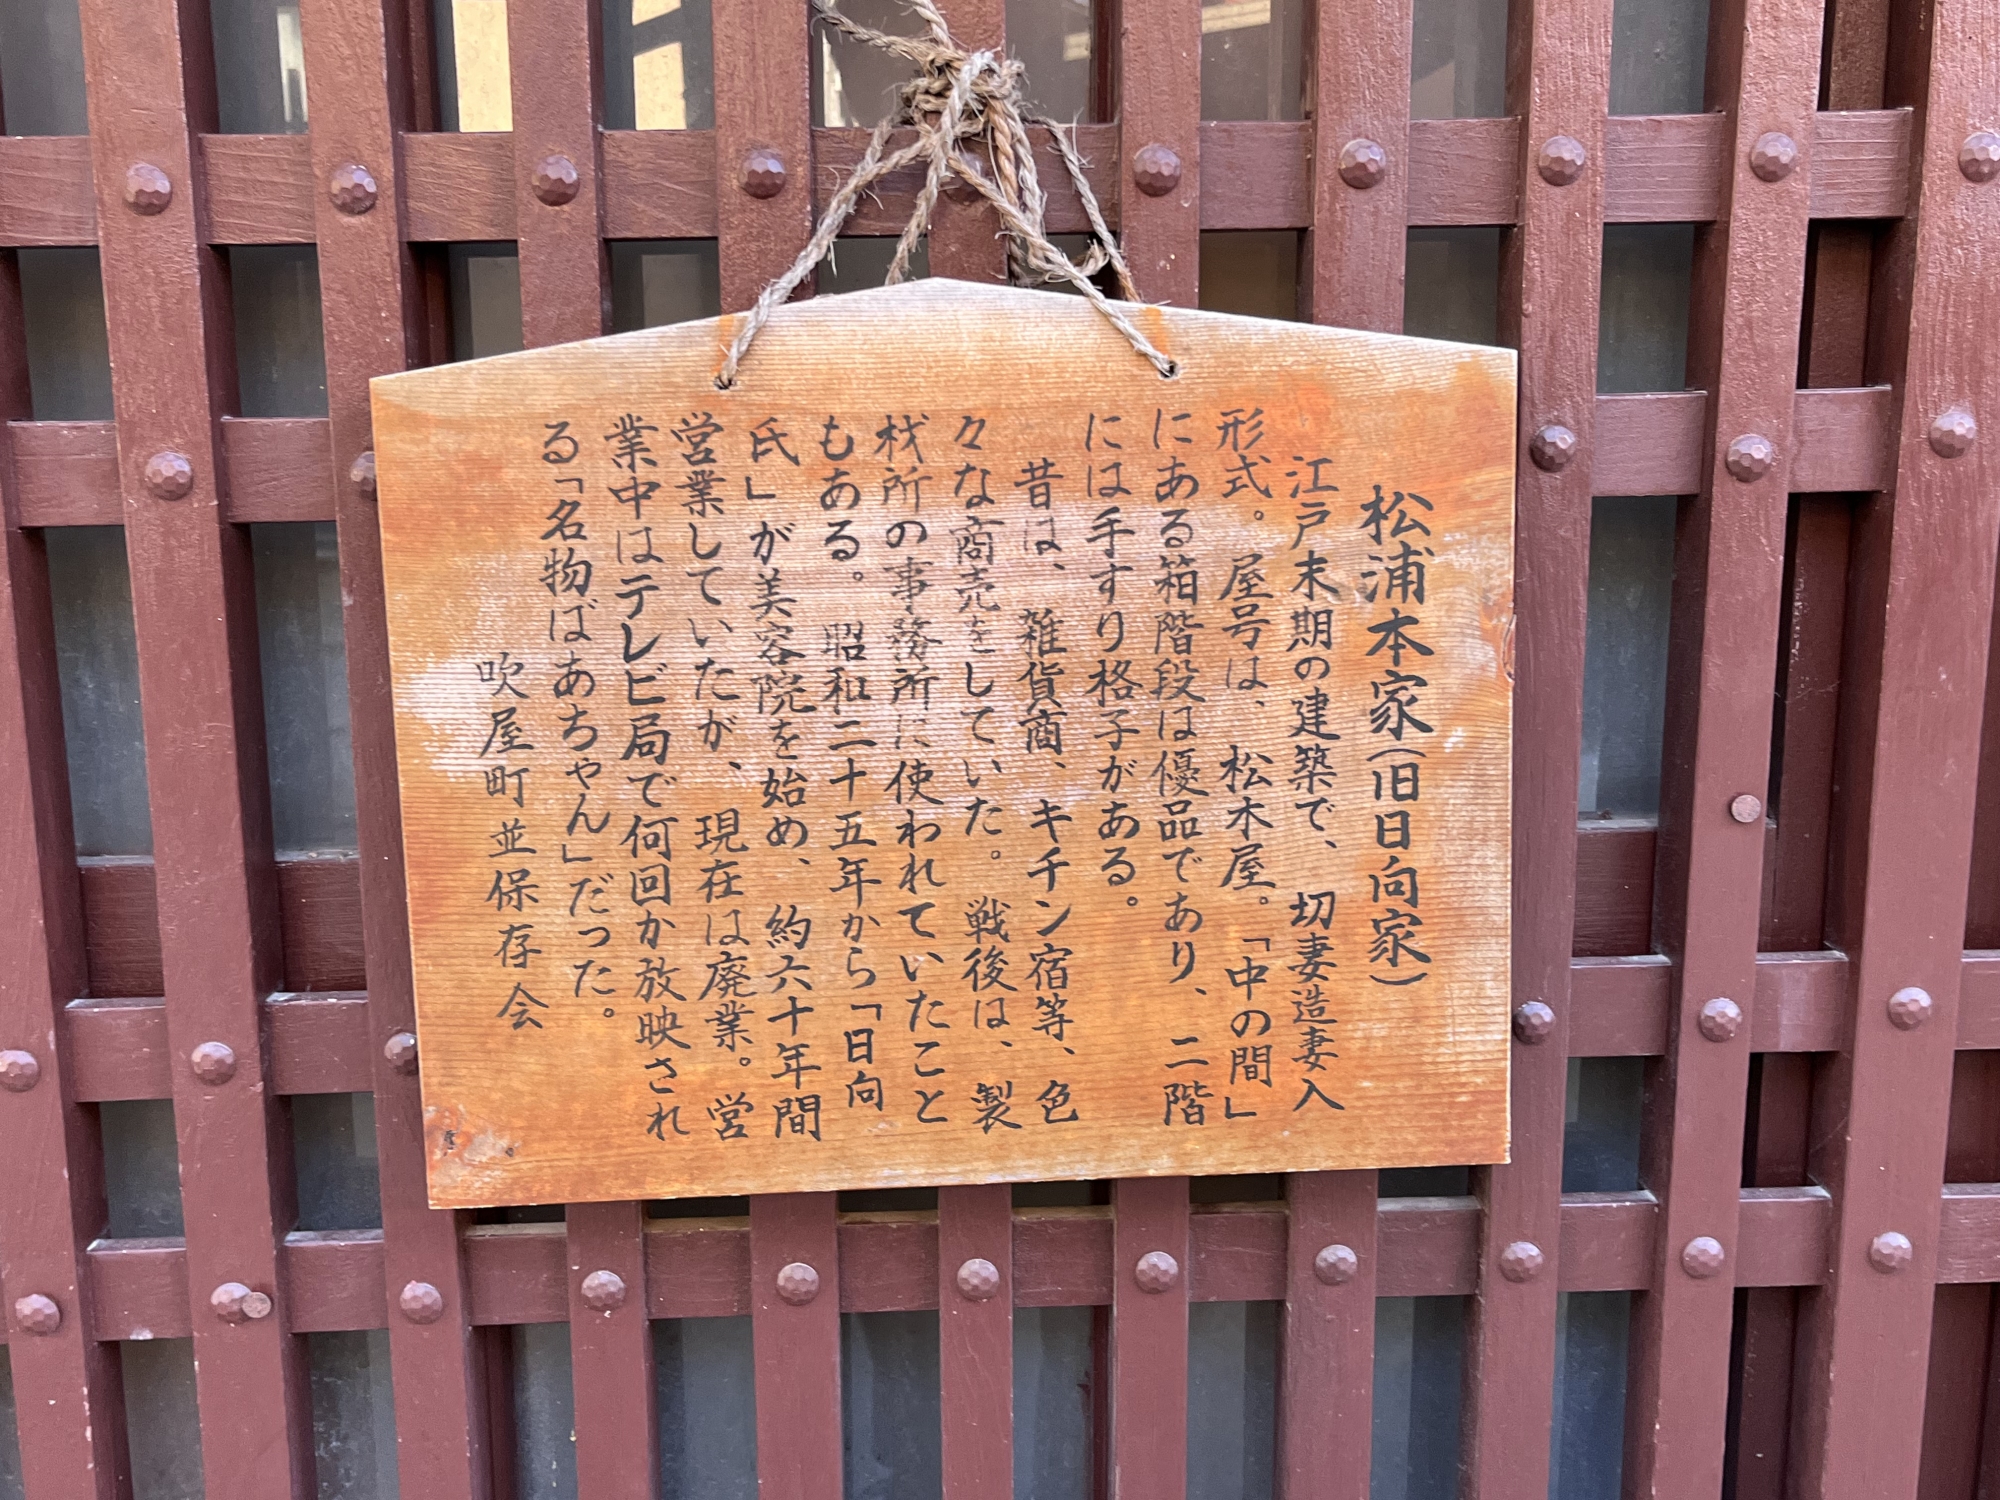 松浦本家(旧日向家)
江戸末期の建築で、切妻造妻入
形式。屋号は、松木屋。「中の間」
にある箱階段は優品であり、二階
には手すり格子がある。
昔は、雑貨商、キチン宿等、色
々な商売をしていた。戦後は、製
材所の事務所に使われていたこと
もある。昭和二十五年から「日向
氏」が美容院を始め、約六十年間
営業していたが、現在は廃業。営
業中はテレビ局で何回か放映され
る「名物ばあちゃん」だった。
吹屋町並保存会